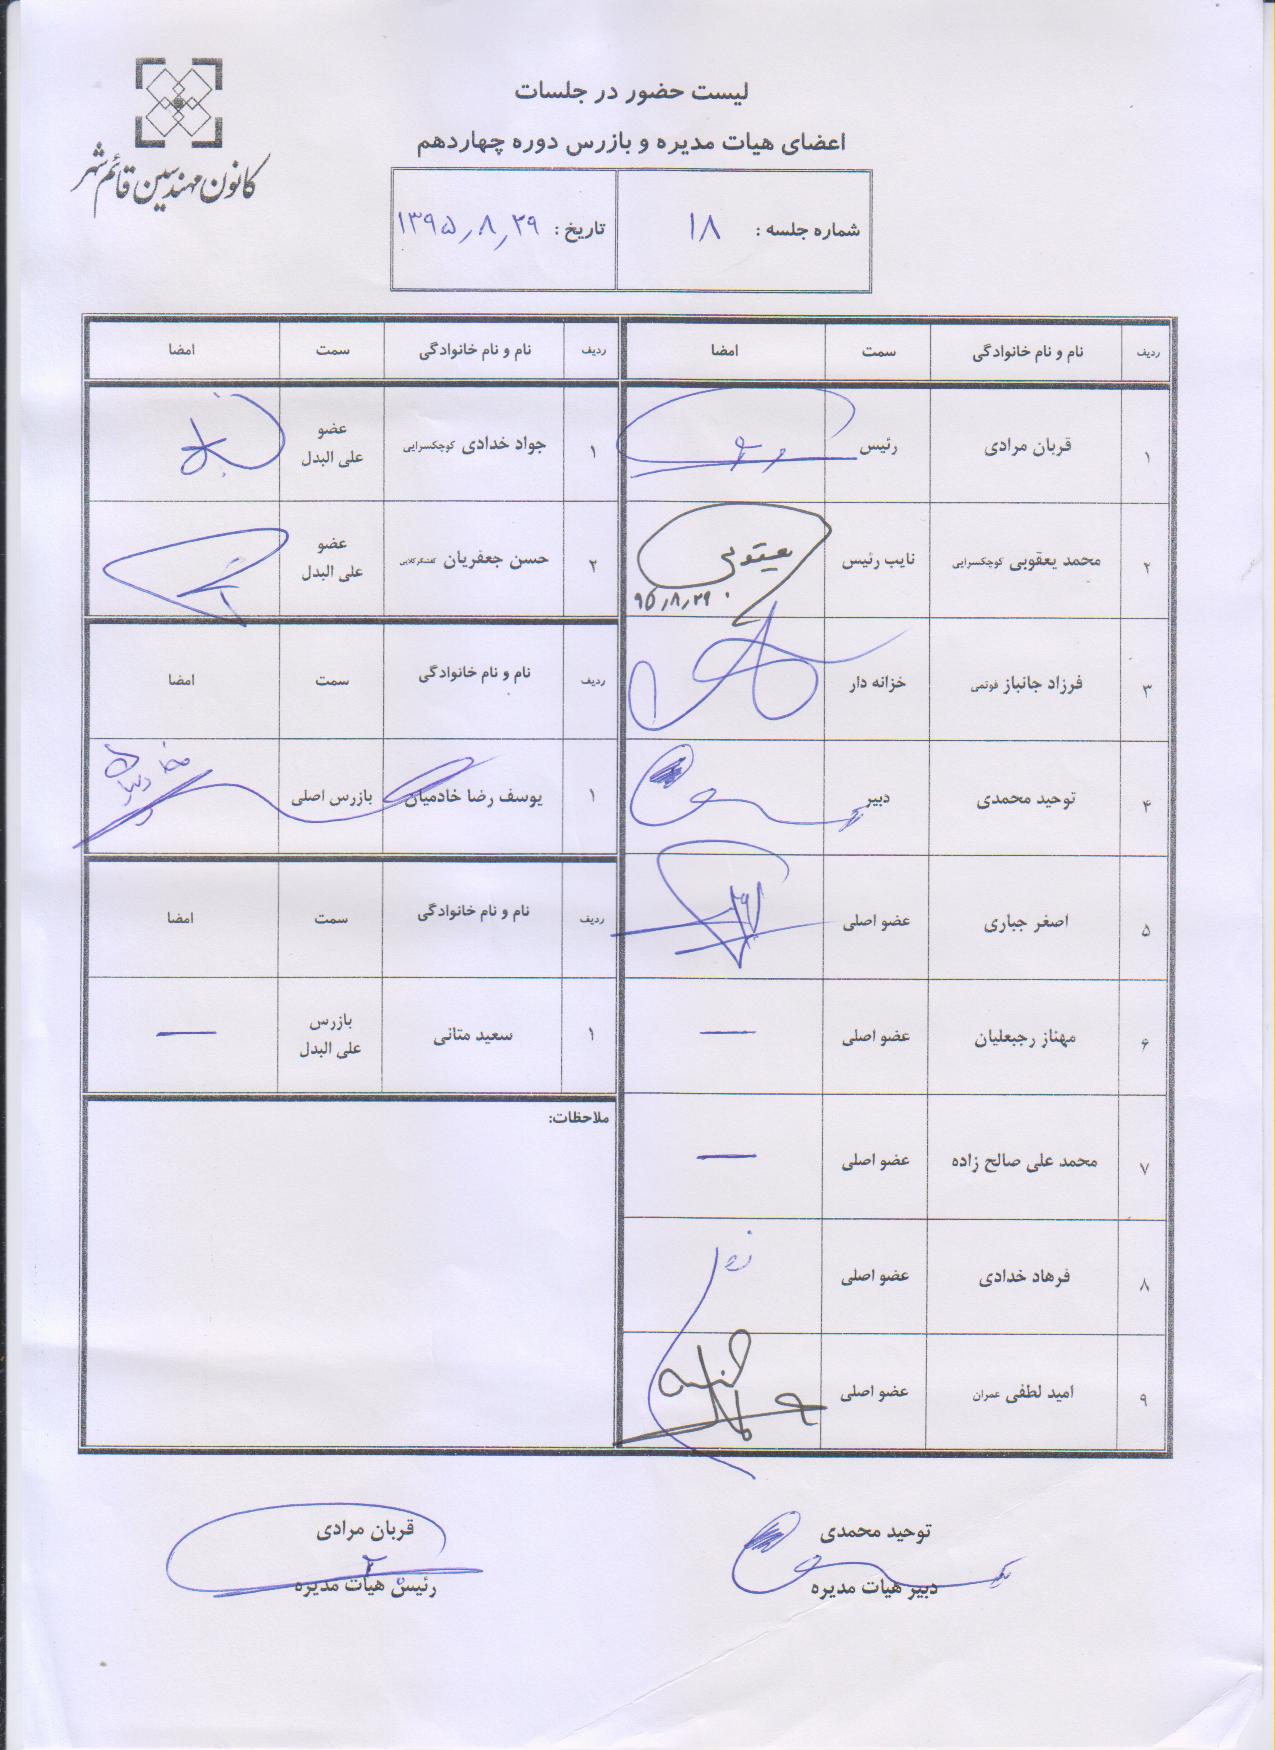 کانون مهندسین قائم شهر
لیست حضور در جلسات
اعضای هیات مدیره و بازرس دوره چهاردهم
شماره جلسه : ۱۸
تاریخ : ۱۳۹۵/۸/۲۹
ردیف نام و نام خانوادگی سمت امضا
۱ قربان مرادی رئیس
۲ محمد یعقوبی کوچکسرایی نایب رئیس یعقوبی
۹۵/۸/۲۹
۳ فرزاد جانباز فوتمی خزانه دار
۴ توحید محمدی دبیر
۵ اصغر جباری عضو اصلی
۶ مهناز رجبعلیان عضو اصلی —
۷ محمد علی صالح زاده عضو اصلی —
۸ فرهاد خدادی عضو اصلی
۹ امید لطفی عمران عضو اصلی
ردیف نام و نام خانوادگی سمت امضا
۱ جواد خدادی کوچکسرایی عضو
علی البدل
۲ حسن جعفریان کفشگرکلایی عضو
علی البدل
ردیف نام و نام خانوادگی سمت امضا
۱ یوسف رضا خادمیان بازرس اصلی
ردیف نام و نام خانوادگی سمت امضا
۱ سعید متانی بازرس
علی البدل —
ملاحظات:
توحید محمدی
دبیر هیات مدیره
قربان مرادی
رئیس هیات مدیره